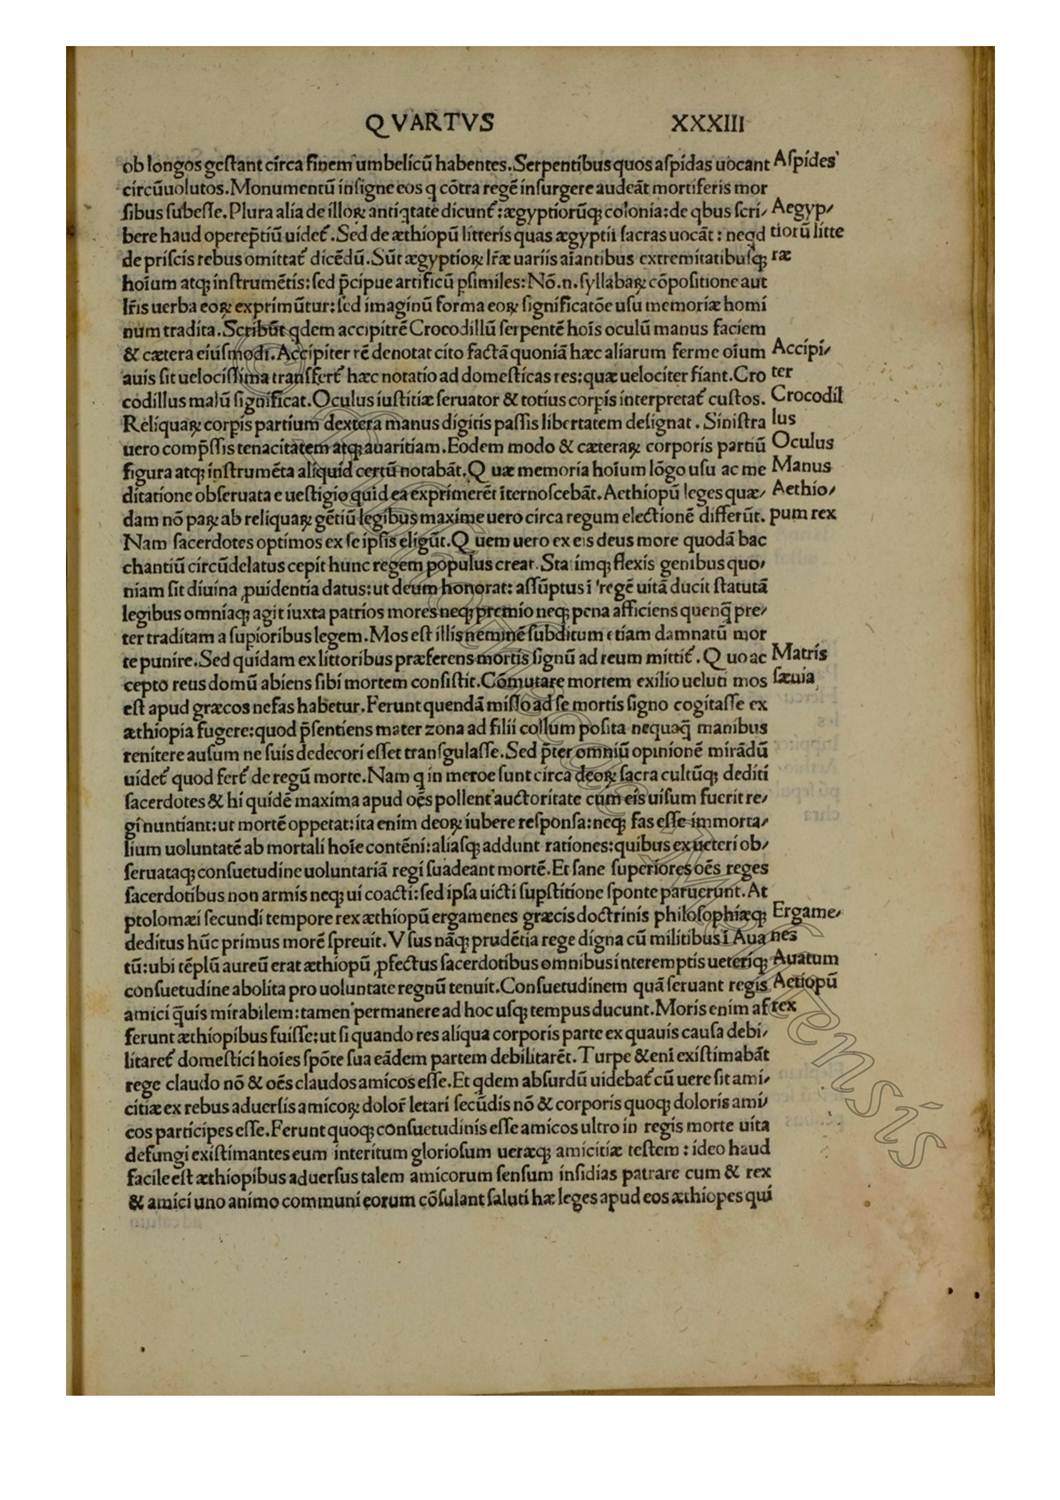 QVARTVS XXXIII
ob longos gestant circa finem umbelicũ habentes. Serpentibus quos aspidas uocant Aspides
circũuolutos. Monumentũ insigne eos q cõtra regẽ insurgere audeãt mortiferis mor
sibus subesse. Plura alia de illoꝝ antiqtate dicunt᷒: ægyptiorũqꝫ colonia: de qbus scri/ Aegyp/
bere haud operep̃tiũ uidet᷒. Sed de æthiopũ litteris quas ægyptii sacras uocãt: neqd tiorũ litte
de priscis rebus omittat᷒ dicẽdũ. Sũt ægyptioꝝ lr̃æ uariis aĩantibus extremitatibusqꝫ ræ
hoĩum atqꝫ instrumẽtis: sed p̃cipue artificũ psimiles: Nõ.n. syllabaꝝ cõpositione aut
lr̃is uerba eoꝝ exprimũtur: sed imaginũ forma eoꝝ significatõe usu memoriæ homi
num tradita. Scribũt qdem accipitrẽ Crocodillũ serpentẽ hoĩs oculũ manus faciem
& cætera eiusmodi. Accipiter rẽ denotat cito factã quoniã hæc aliarum ferme oĩum Accipi/
auis sit uelocissima transfert᷒ hæc notatio ad domesticas res: quæ uelociter fiant. Cro ter
codillus malũ significat. Oculus iustitiæ seruator & totius corpis interpretat᷒ custos. Crocodil
Reliquaꝝ corpis partium dextera manus digitis passis libertatem designat. Sinistra lus
uero comp̃ssis tenacitatem atqꝫ auaritiam. Eodem modo & cæteraꝝ corporis partiũ Oculus
figura atqꝫ instrumẽta aliquid certũ notabãt. Quæ memoria hoĩum lõgo usu ac me Manus
ditatione obseruata e uestigio quid ea exprimerẽt ĩternoscebãt. Aethiopũ leges quæ/ Aethio/
dam nõ paꝝ ab reliquaꝝ gẽtiũ legibus maxime uero circa regum electionẽ differũt. pum rex
Nam sacerdotes optimos ex se ipsis eligũt. Quem uero ex eis deus more quodã bac
chantiũ circũdelatus cepit hunc regem populus creat. Statimqꝫ flexis genibus quo/
niam sit diuina ꝓuidentia datus: ut deum honorat: assũptus ĩ regẽ uitã ducit statutã
legibus omniaqꝫ agit iuxta patrios mores neqꝫ premio neqꝫ pena afficiens quenq̃ pre/
ter traditam a supioribus legem. Mos est illis neminẽ subditum etiam damnatũ mor
te punire. Sed quidam ex littoribus præferens mortis signũ ad reum mittit᷒. Quo ac Matris
cepto reus domũ abiens sibi mortem consistit. Cõmutare mortem exilio ueluti mos sæuia
est apud græcos nefas habetur. Ferunt quendã misso ad se mortis signo cogitasse ex
æthiopia fugere: quod p̃sentiens mater zona ad filii collum posita nequaq̃ manibus
renitere ausum ne suis dedecori esset transgulasse. Sed p̃ter omniũ opinionẽ mirãdũ
uidet᷒ quod fert᷒ de regũ morte. Nam q in meroe sunt circa deoꝝ sacra cultũqꝫ dediti
sacerdotes & hi quidẽ maxima apud oẽs pollent auctoritate cum eis uisum fuerit re/
gi nuntiant: ut mortẽ oppetat: ita enim deoꝝ iubere responsa: neqꝫ fas esse immorta/
lium uoluntatẽ ab mortali hoĩe contẽni: aliasqꝫ addunt rationes: quibus ex ueteri ob/
seruataqꝫ consuetudine uoluntariã regi suadeant mortẽ. Et sane superiores oẽs reges
sacerdotibus non armis neqꝫ ui coacti: sed ipsa uicti supstitione sponte paruerunt. At
ptolomæi secundi tempore rex æthiopũ ergamenes græcis doctrinis philosophiæqꝫ Ergame/
deditus hũc primus morẽ spreuit. Vsus nãqꝫ prudẽtia rege digna cũ militibus ĩ Aua nes
tũ: ubi tẽplũ aureũ erat æthiopũ ꝓfectus sacerdotibus omnibus interemptis ueteriqꝫ Auatum
consuetudine abolita pro uoluntate regnũ tenuit. Consuetudinem quã seruant regis Aetiopũ
amici q̃uis mirabilem: tamen permanere ad hoc usqꝫ tempus ducunt. Moris enim af rex
ferunt æthiopibus fuisse: ut si quando res aliqua corporis parte ex quauis causa debi/
litaret᷒ domestici hoĩes spõte sua eãdem partem debilitarẽt. Turpe & enĩ existimabãt
rege claudo nõ & oẽs claudos amicos esse. Et qdem absurdũ uidebat᷒ cũ uere sit ami/
citiæ ex rebus aduersis amicoꝝ dolor᷒ letari secũdis nõ & corporis quoqꝫ doloris ami/
cos participes esse. Ferunt quoqꝫ consuetudinis esse amicos ultro in regis morte uita
defungi existimantes eum interitum gloriosum ueræqꝫ amicitiæ testem: ideo haud
facile est æthiopibus aduersus talem amicorum sensum insidias patrare cum & rex
& amici uno animo communi eorum cõsulant saluti hæ leges apud eos æthiopes qui